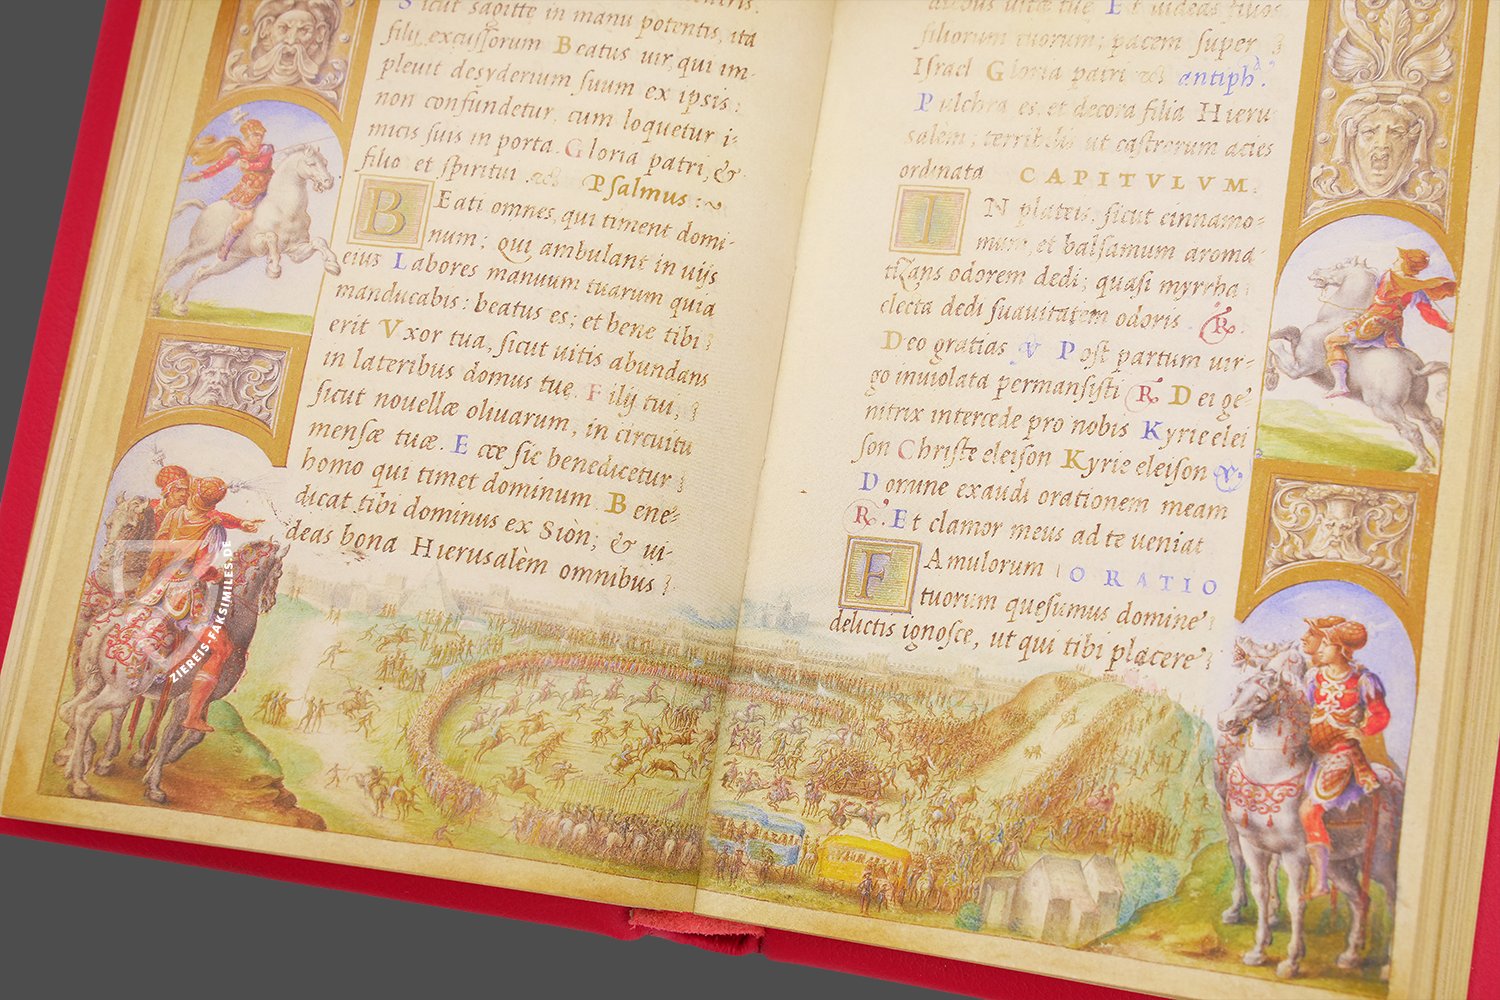 Sicut sagitte in manu potentis, ita
filij excussorum Beatus uir, qui im-
pleuit desyderium suum ex ipsis:
non confundetur, cum loquetur i-
micis suis in porta. Gloria patri, &
filio et spiritui Psalmus:~
BEati omnes, qui timent domi-
num: qui ambulant in uijs
eius Labores manuum tuarum quia
manducabis: beatus es; et bene tibi
erit Vxor tua, sicut uitis abundans
in lateribus domus tue. Filij tui,
sicut nouellæ oliuarum, in circuitu
mensæ tuæ. Ecce sic benedicetur
homo qui timet dominum Bene-
dicat tibi dominus ex Siòn; & ui-
deas bona Hierusalèm omnibus
diebus uitæ tue Et uideas filios
filiorum tuorum; pacem super
Israel Gloria patri antiph.
Pulchra es, et decora filia Hieru
salèm; terribilis ut castrorum acies
ordinata CAPITVLVM.
IN plateis, sicut cinnamo-
mum, et balsamum aroma-
tizans odorem dedi; quasi myrrha
electa dedi suauitatem odoris. R.
Deo gratias V Post partum uir-
go inuiolata permansisti R. Dei ge-
nitrix intercede pro nobis Kyrie elei
son Christe eleison Kyrie eleison V.
Domine exaudi orationem meam
R. Et clamor meus ad te ueniat
FAmulorum ORATIO
tuorum quesumus domine
delictis ignosce, ut qui tibi placere
ZIEREIS-FAKSIMILES.DE